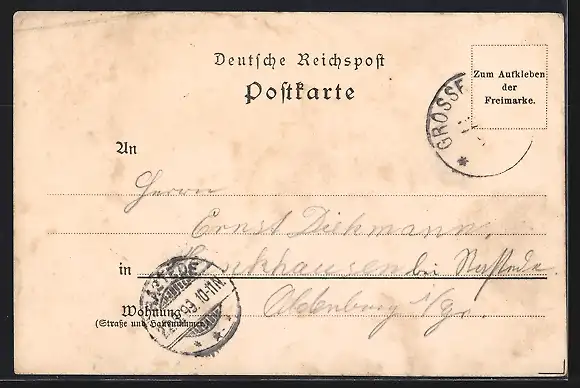 Deutsche Reichspost
Postkarte
Zum Aufkleben
der
Freimarke.
GROSSE
An
Herrn
Ernst Diekmann,
in bei Rastede.
RASTEDE
99 10-11N
Oldenburg i/Gr.
Wohnung
(Straße und Hausnummer)